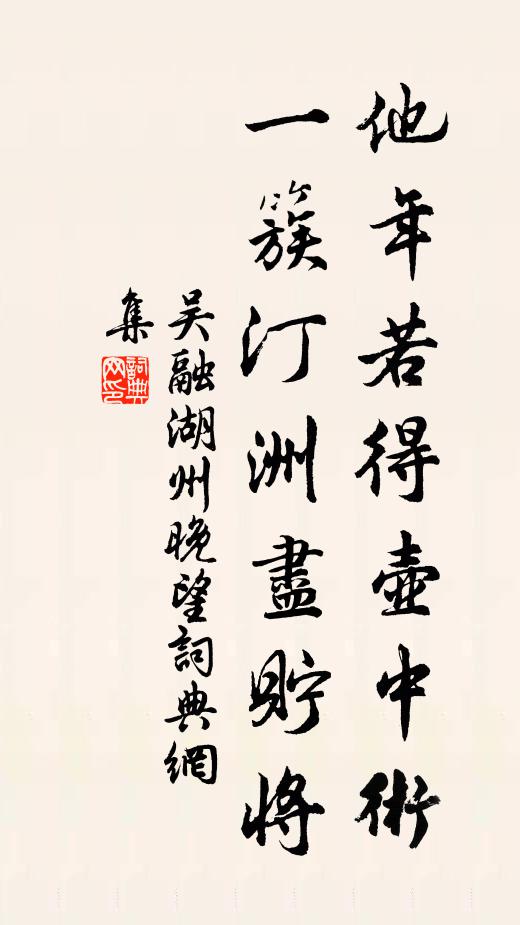 他年若得壺中術
一簇汀洲盡貯將
吳融湖州晚望詞典網
集
詞典
網印